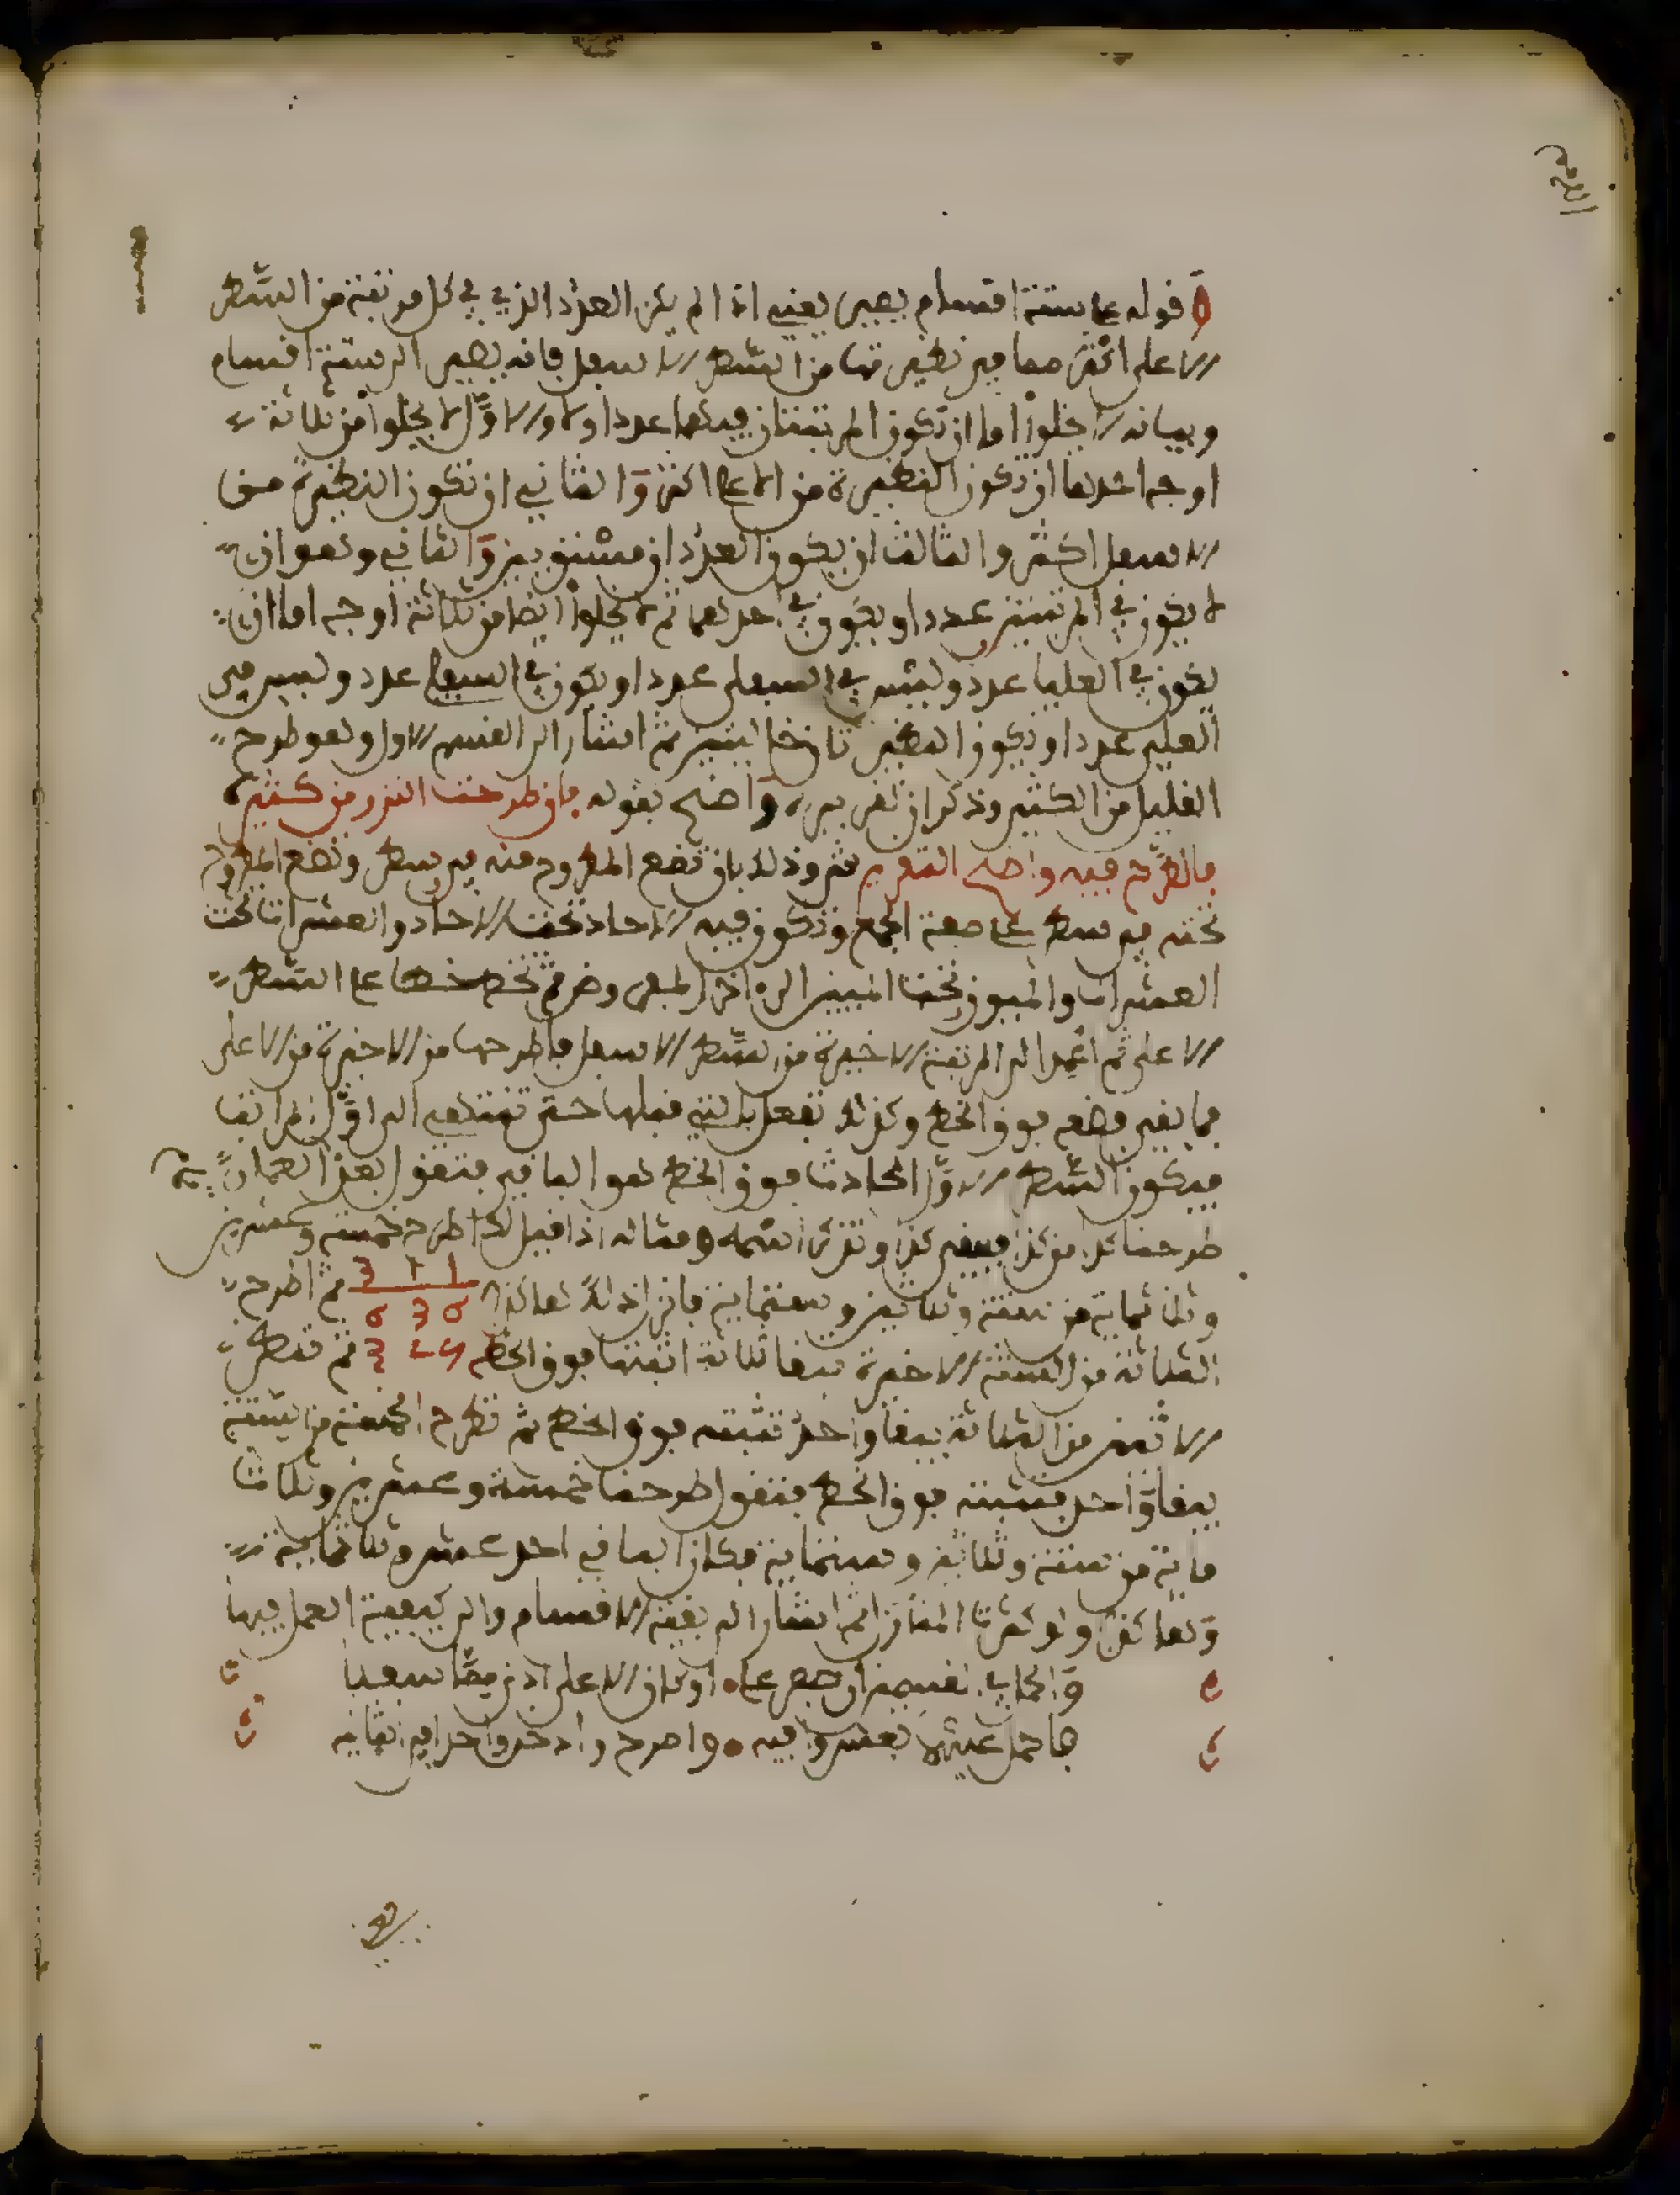 قوله على ستة اقسام يصير يعني اذا لم يكن العدد الذي في كل مرتبة من السطر
الاعلى اكثر مما في نظيرتها من السطر الاسفل فانه يصير الى ستة اقسام
وبيانه لا يخلوا اما ان تكون المرتبتان فيهما عددا او لا والاول لا يخلوا من ثلاثة
اوجه احدها ان تكون النظيرة من الاعلى اكثر والثاني ان تكون النظيرة من
الاسفل اكثر والثالث ان يكون العددان مستويين والثاني وهو ان
لا يكون في المرتبتين عدد او يكون في احدهما ثم لا يخلوا ايضا من ثلاثة اوجه اما ان
يكون في العليا عدد وليس في السفلى عدد او يكون في السفلى عدد وليس في
العليى عدد او تكون النظيرتان خاليتين ثم اشار الى القسم الاول وهو طرح
القليل من الكثير وذكر ان تقريره واضح بقوله فان طرحت النزر من كثير
فالطرح فيه واضح التقرير ثم وذلك بان تضع المطروح منه في سطر وتضع المطروح
تحته في سطر على صفة الجمع وتكون فيه الاحاد تحت الاحاد والعشرات تحت
العشرات والميون تحت الميين الى اخر المفروض ثم تخط خطا على السطر
الاعلى ثم اعمد الى المرتبة الاخيرة من السطر الاسفل فاطرحها من الاخيرة من الاعلى
فما بقي فضعه فوق الخط وكذلك تفعل بالتي قبلها حتى تنتهي الى اول المراتب
فيكون السطر الاول الحادث فوق الخط هو الباقي فتقول بعد العمل
طرحنا كذا من كذا فيبقى كذا وتذكر اسمه ومثاله اذا قيل لك اطرح خمسة وعشرين
وثلاثماية من ستة وثلاثين وستماية فانزل ذلك هاكذا 3 1 1 ثم اطرح
6 3 6
الثلاثة من الستة الاخيرة يبقا ثلاثة اثبتها فوق الخط 3 2 5 ثم تطرح
الاثنين من الثلاثة يبقا واحد تثبته فوق الخط ثم تطرح الخمسة من الستة
يبقا واحد فتثبته فوق الخط فتقول طرحنا خمسة وعشرين وثلاث
ماية من ستة وثلاثين وستماية فكان الباقي احد عشر وثلاثماية
وهاكذا ولو كثرت المنازل ثم اشار الى بقية الاقسام والى كيفية العمل فيها
او كان الاعلى
فاحمل عشرة